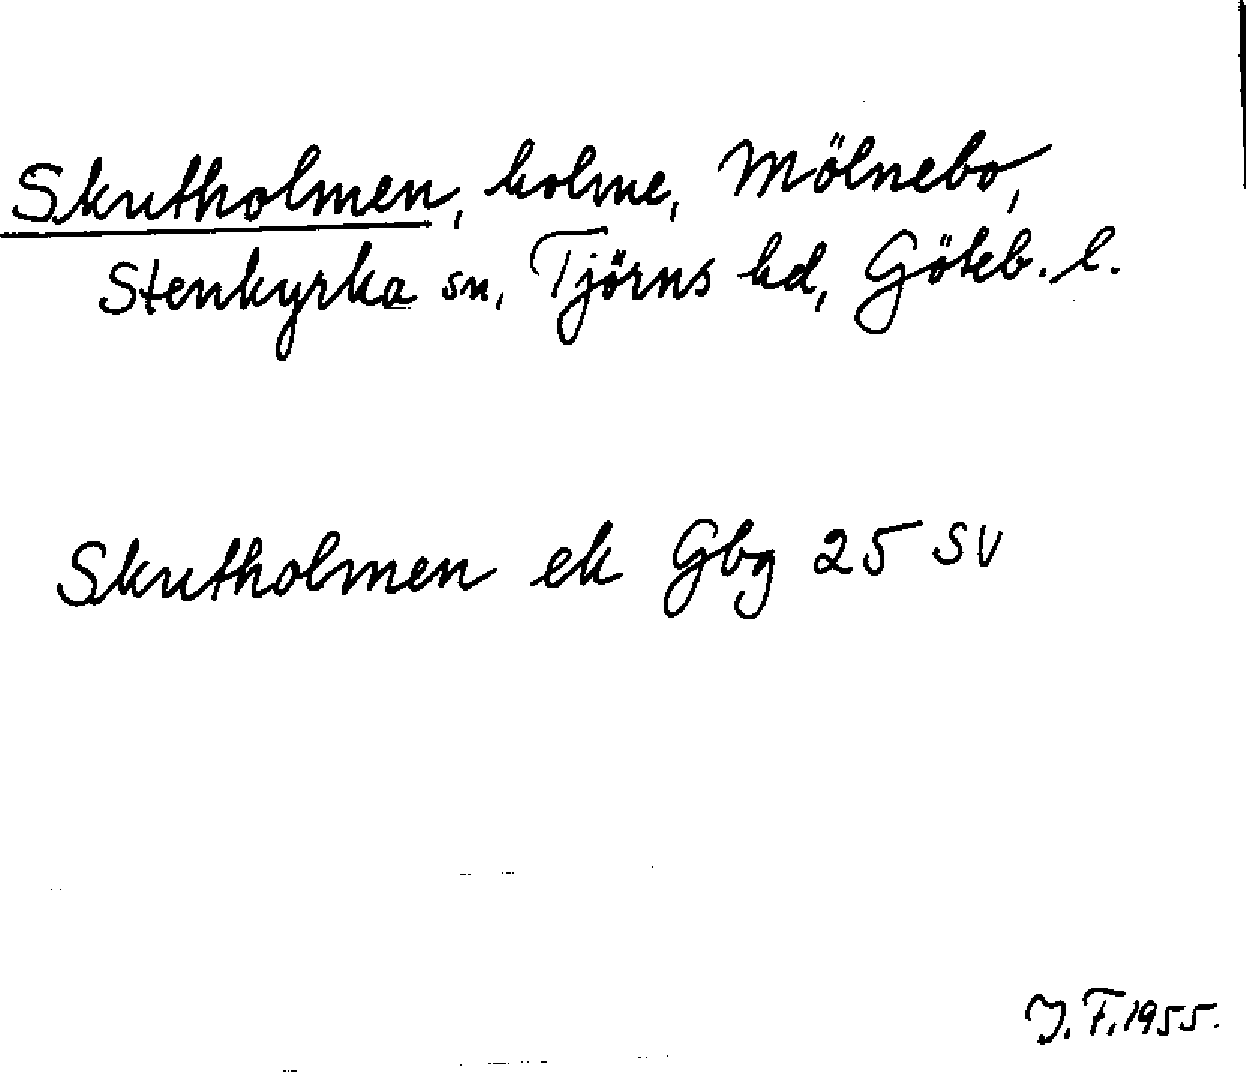 Skutholmen, holme, Mölnebo,
Stenkyrka sn, Tjörns hd, Göteb. l.
Skutholmen ek Gbg 25 SV
J. F. 1955.